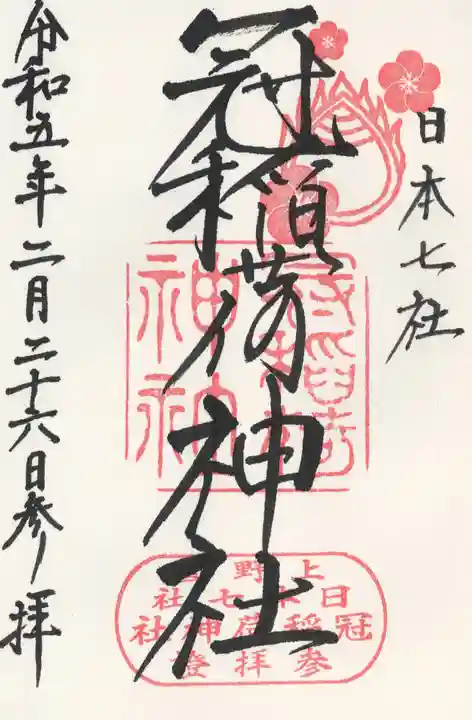 日本七社
冠稲荷神社
令和五年二月二十六日参拝
冠稲荷
神社
上野國
日本七社
冠稲荷神社
参拝證